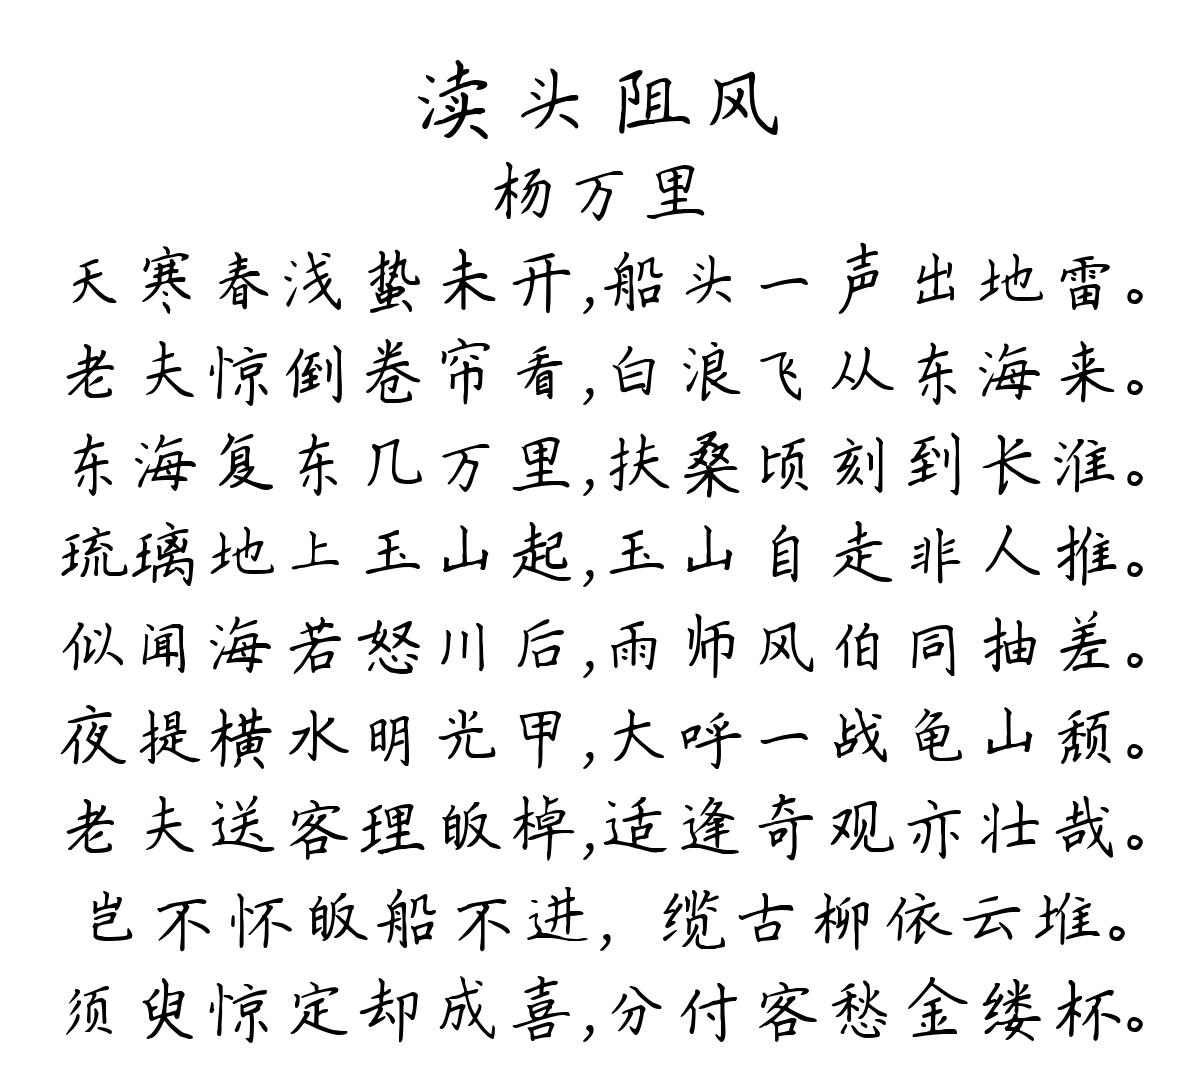 渎头阻风
杨万里
天寒春浅蛰未开,船头一声出地雷。
老夫惊倒卷帘看,白浪飞从东海来。
东海复东几万里,扶桑顷刻到长淮。
琉璃地上玉山起,玉山自走非人推。
似闻海若怒川后,雨师风伯同抽差。
夜提横水明光甲,大呼一战龟山颓。
老夫送客理皈棹,适逢奇观亦壮哉。
岂不怀皈船不进，缆古柳依云堆。
须臾惊定却成喜,分付客愁金缕杯。